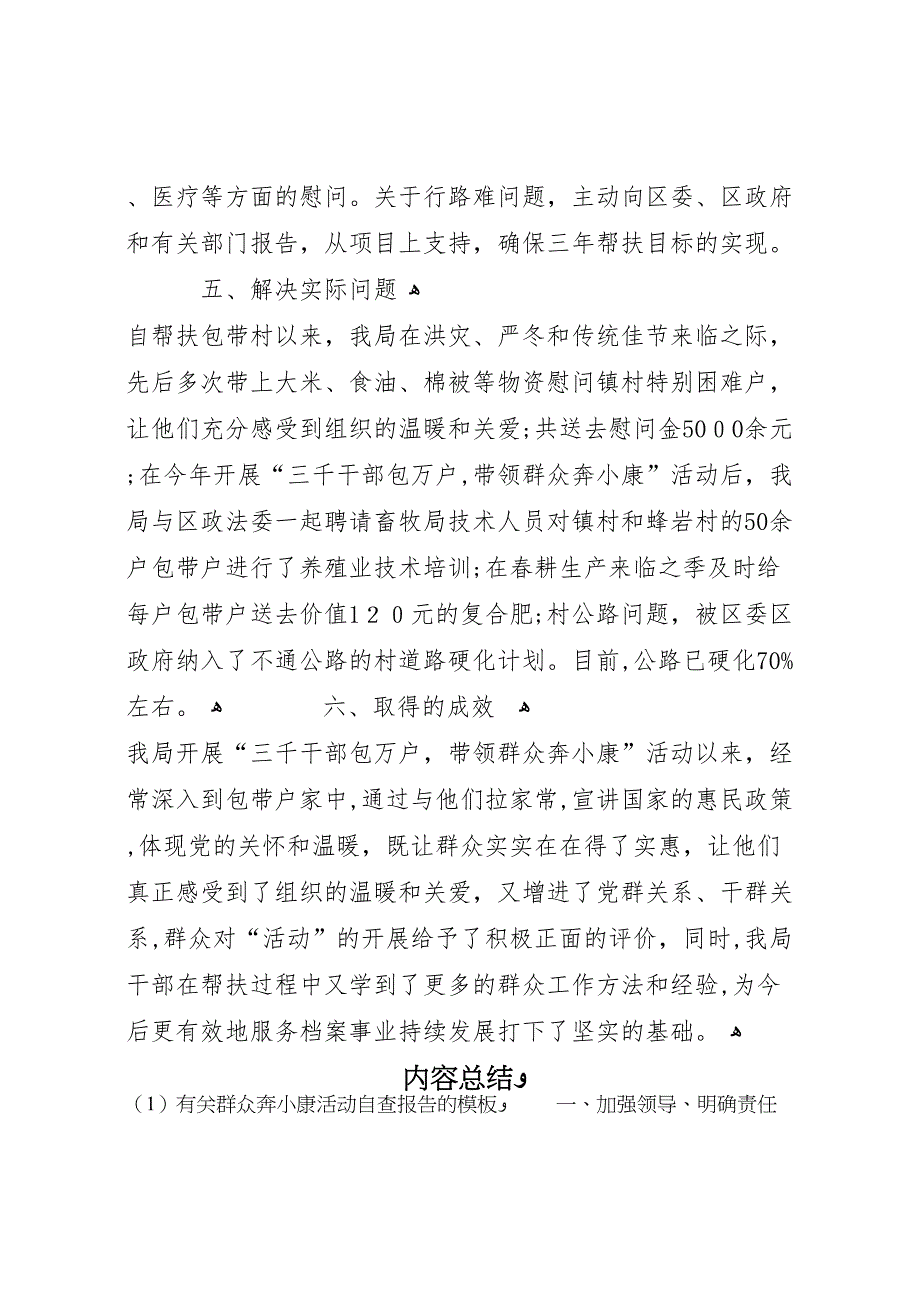 、医疗等方面的慰问。关于行路难问题，主动向区委、区政府
和有关部门报告，从项目上支持，确保三年帮扶目标的实现。
五、解决实际问题 ﻫ
自帮扶包带村以来，我局在洪灾、严冬和传统佳节来临之际，
先后多次带上大米、食油、棉被等物资慰问镇村特别困难户，
让他们充分感受到组织的温暖和关爱;共送去慰问金5000余元
;在今年开展“三千干部包万户,带领群众奔小康”活动后，我
局与区政法委一起聘请畜牧局技术人员对镇村和蜂岩村的50余
户包带户进行了养殖业技术培训;在春耕生产来临之季及时给
每户包带户送去价值120元的复合肥;村公路问题，被区委区
政府纳入了不通公路的村道路硬化计划。目前,公路已硬化70%
左右。 ﻫ 六、取得的成效 ﻫ
我局开展“三千干部包万户，带领群众奔小康”活动以来，经
常深入到包带户家中,通过与他们拉家常,宣讲国家的惠民政策
,体现党的关怀和温暖，既让群众实实在在得了实惠，让他们
真正感受到了组织的温暖和关爱，又增进了党群关系、干群关
系,群众对“活动”的开展给予了积极正面的评价，同时,我局
干部在帮扶过程中又学到了更多的群众工作方法和经验,为今
后更有效地服务档案事业持续发展打下了坚实的基础。 ﻫ
内容总结ﻭ
（1）有关群众奔小康活动自查报告的模板ﻭ 一、加强领导、明确责任